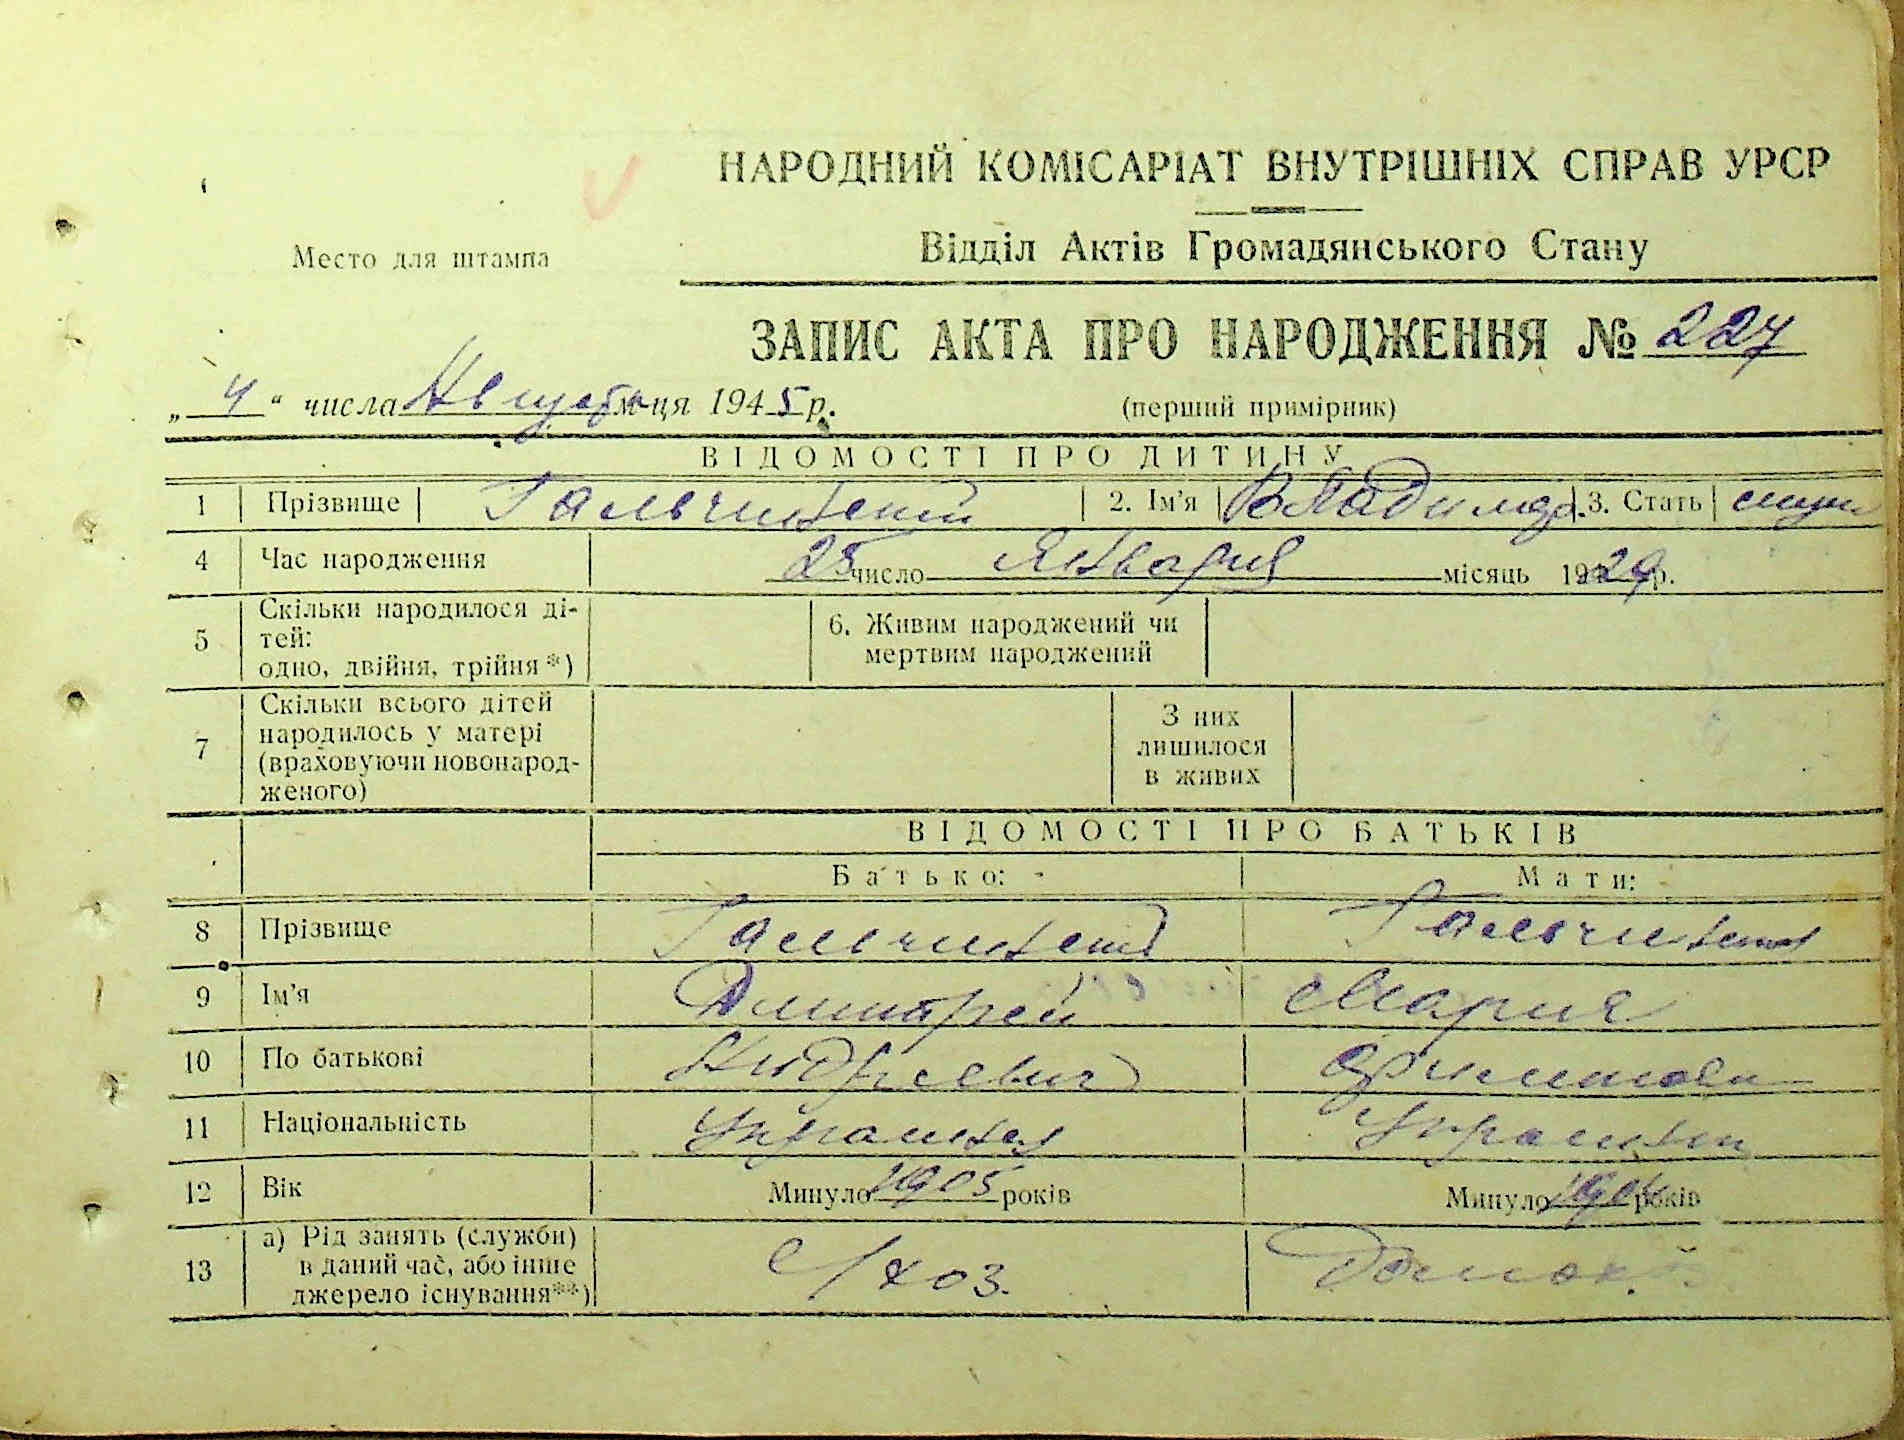 НАРОДНИЙ КОМІСАРІАТ ВНУТРІШНІХ СПРАВ УРСР
Место для штампа
Відділ Актів Громадянського Стану
ЗАПИС АКТА ПРО НАРОДЖЕННЯ № 227
„ 4 “ числа Августа м-ця 1945 р.
(перший примірник)
ВІДОМОСТІ ПРО ДИТИНУ
1 Прізвище Гальчинский 2. Ім'я Владимир. 3. Стать муж
4 Час народження 25 число Января місяць 1929 р.
5 Скільки народилося ді-
тей:
одно, двійня, трійня *)
6. Живим народжений чи
мертвим народжений
7 Скільки всього дітей
народилось у матері
(враховуючи новонарод-
женого)
З них
лишилося
в живих
ВІДОМОСТІ ПРО БАТЬКІВ
Батько: Мати:
8 Прізвище Гальчинский Гальчинская
9 Ім'я Дмитрей Мария
10 По батькові Андреевич
11 Національність Украинец Украинка
12 Вік Минуло 1905 років Минуло 1904 років
13 а) Рід занять (служби)
в даний час, або інше
джерело існування**)
с/хоз. Домох.